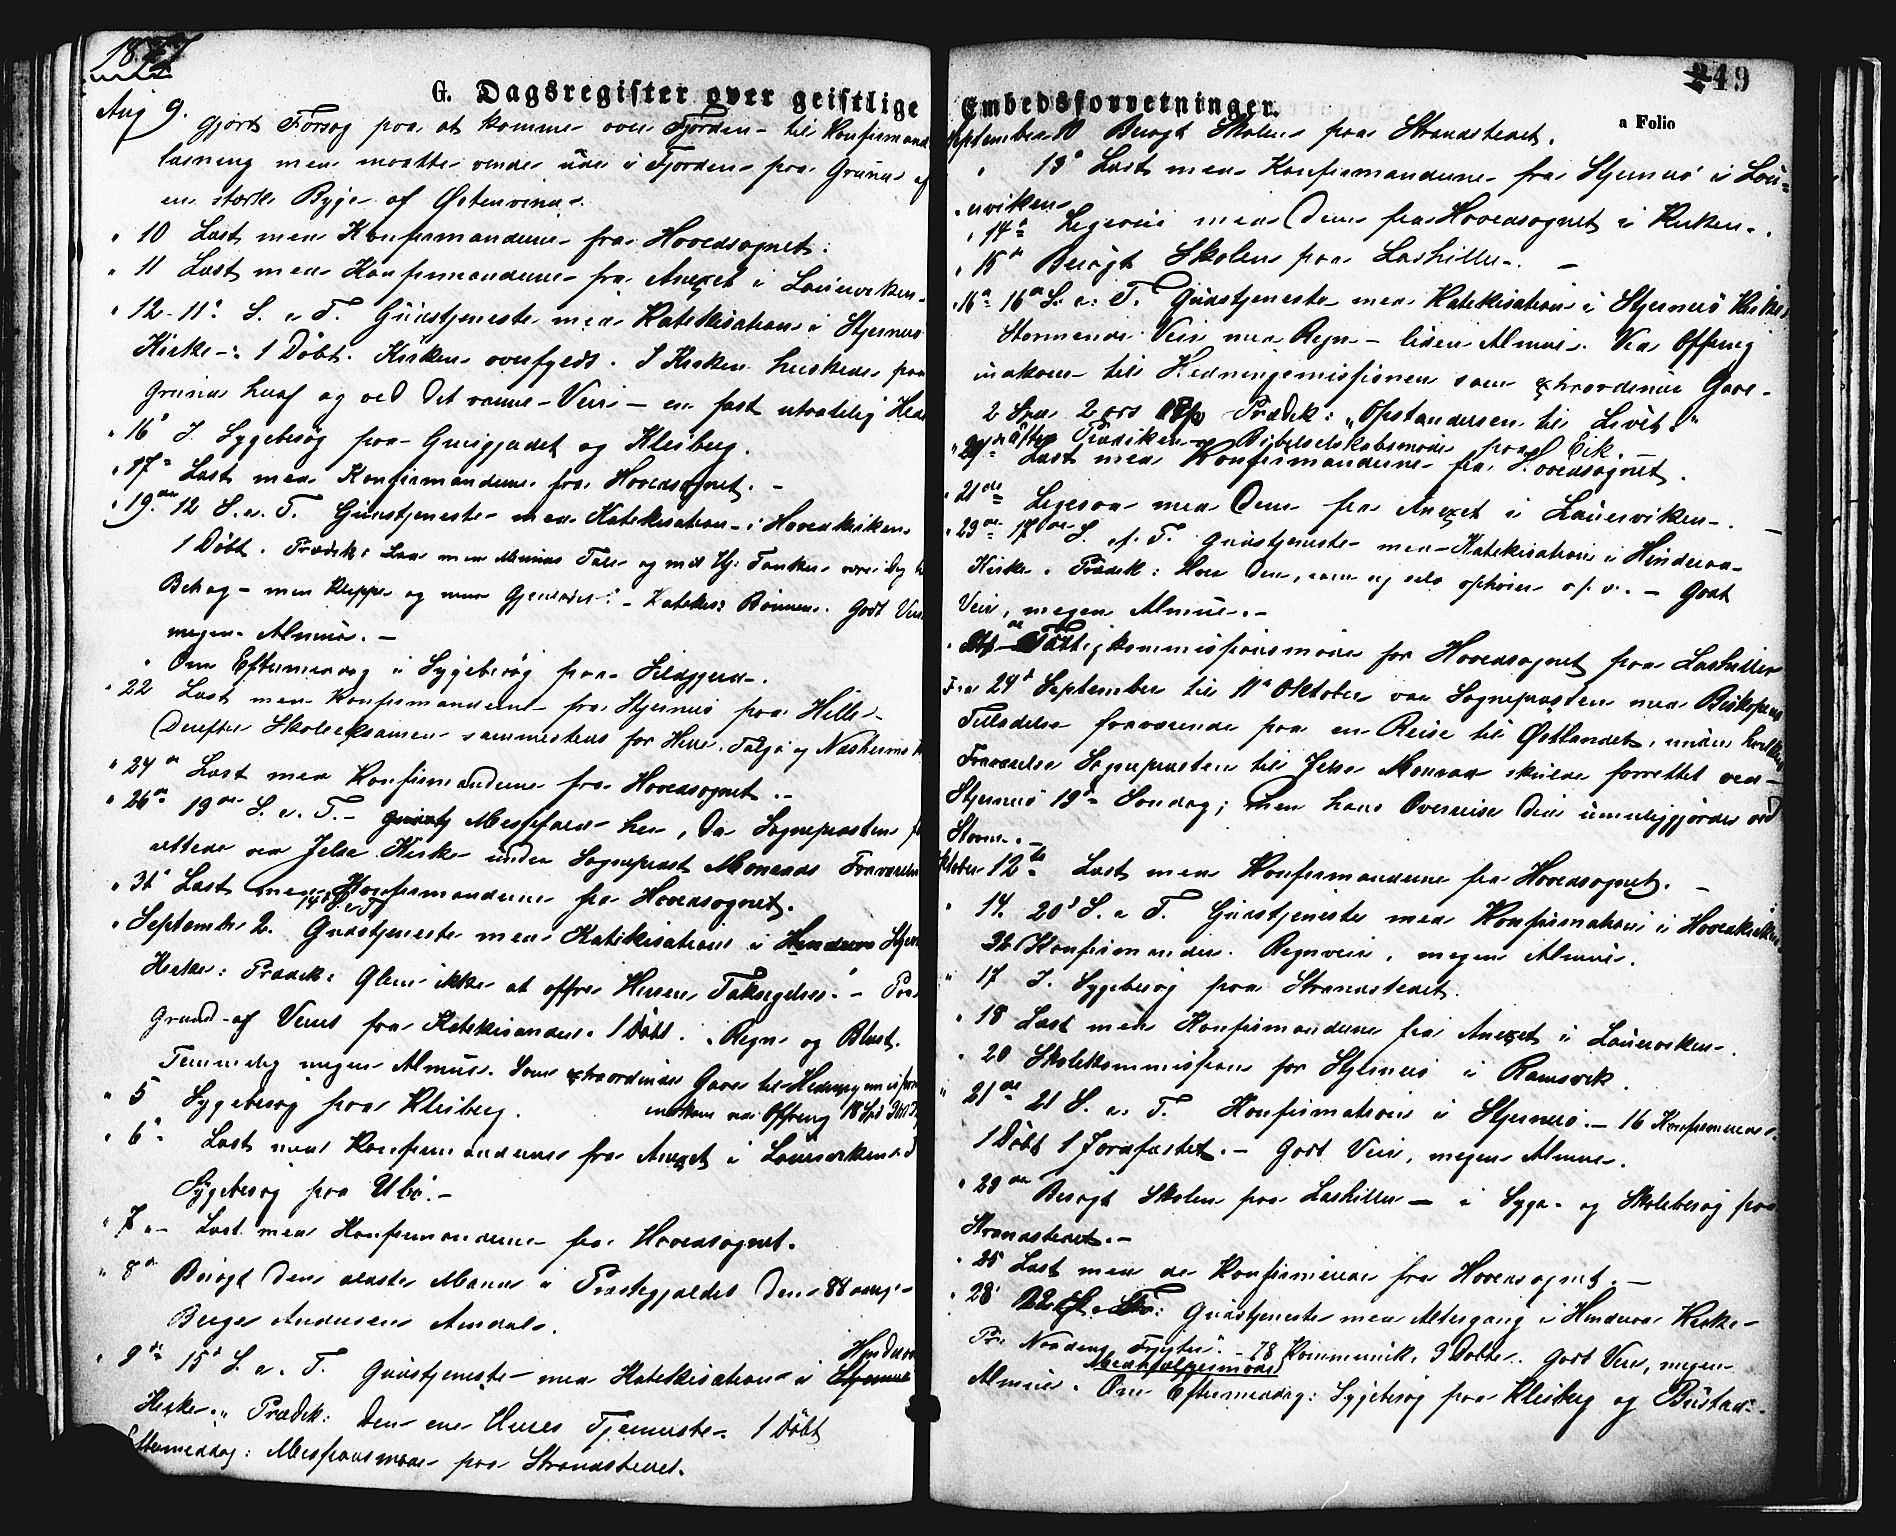 1877
G. Dagsregister over geistlige
Aug 9. Gjort Forsøg paa at komme over Fjorden til Konfirmand
læsning men maatte vende ude i Fjorden paa Grund af
en stærk Byge af Østenvind.
" 10 Læst med Konfirmanderne fra Hovedsognet.
" 11 Læst med Konfirmanderne fra Anexet i Louisviken
" 12 - 11te S. e. T. Gudstjeneste med Katekisation i Stjernerø
Kirke - 1 Døbt. Kirken overfyldt. I Kirken herskede paa
Grund heraf og ved det varme Veir - en fast utaalelig Hede
" 16 I Sygebesøg paa og Kleiberg.
" 17 Læst med Konfirmanderne fra Hovedsognet. -
" 19de 12 S. e. T. Gudstjeneste med Katekisation i Hovedkirken
1 Døbt. Prædik: Lad min Munds Tale og mit Hj. Tanker være dig til
Behag - min Klippe og min Gjenløser. - Katekis: Bønnen. Godt Veir
megen Almue. -
" Om Eftermiddag i Sygebesøg paa
" 22 Læst med Konfirmanderne fra Stjernerø paa Helle
Derefter Skoleeksamen sammesteds for Helle, Talgø og
" 24de Læst med Konfirmanderne fra Hovedsognet. -
" 26de 13de S. e. T. - Messefald her, da Sognepræsten
rettede ved Jelse Kirke under Sognepræst Monrads Fraværelse
" 31te Læst med Konfirmanderne fra Hovedsognet.
14de S. e. T.
" September 2. Gudstjeneste med Katekisation i Hinderaa
Kirke: Prædik: Glem ikke at ofre Herren Taksigelse. - Paa
Grund af Veiret faa Katekisander. 1 Døbt. Regn og Blæst.
Temmelig megen Almue. Som extraordinær Gave til Hedningemissionen
indkom ved Offring 18 Spd
" 5 Sygebesøg paa Kleiberg.
" 6te Læst med Konfirmanderne fra Anexet i Louisviken. I
Sygebesøg paa Ubø. -
" 7de - Læst med Konfirmanderne fra Hovedsognet.
" 8de Besøgt den ældste Mand i Præstegjældet den 88 aarige
Berge Andersen Amdal.
" 9de 15de S. e. T. Gudstjeneste med Katekisation i Hinderaa
Kirke. Prædik: Den ene Herres Tjeneste. 1 Døbt
Eftermiddag: Missionsmøde paa Strandstedet.
249
Embedsforretninger.
a Folio
September 10 Besøgt Skolen paa Strandstedet.
" 13de Læst med Konfirmanderne fra Stjernerø i Lou-
isviken
" 14de Ligesaa med Dem fra Hovedsognet i Kirken.
" 15de Besøgt Skolen paa Lashille. -
" 16de 16de S. e. T. Gudstjeneste med Katekisation i Stjernerø Kirke
Stormende Veir med Regn - liden Almue. Ved Offring
indkom til Hedningemissionen som extraordinær Gave
2 Spd. 2 ort Prædik: "Opstandelsen til Livet."
efter Prædiken Bibelselskabsmøde paa Eik. -
Læst med Konfirmanderne fra Hovedsognet.
" 21de Ligesaa med Dem fra Anexet i Louisviken. -
" 23de 17de S. e. T. Gudstjeneste med Katekisation i Hinderaa
Kirke. Prædik: Hver den, som sig selv ophøier o.s.v. - Godt
Veir, megen Almue. -
Fattigkommissionsmøde for Hovedsognet paa Lashille
Fra 24de September til 11te Oktober var Sognepræsten med Biskopens
Tilladelse fraværende paa en Reise til Østlandet, under hvilken
Fraværelse Sognepræsten til Jelse Monrad skulde forrettet ved
Stjernerø 19de Søndag; men hans Overreise did umuliggjordes ved
Storm. -
Oktober 12te Læst med Konfirmanderne fra Hovedsognet. -
" 14. 20de S. e. T. Gudstjeneste med Konfirmation i Hovedkirken
32 Konfirmander. Regnveir, megen Almue.
" 17 I Sygebesøg paa Strandstedet.
" 18 Læst med Konfirmanderne fra Anexet i Louisviken.
" 20 Skolekommission for Stjernerø i Ramsvik.
" 21de 21 S. e. T. Konfirmation i Stjernerø. - 16 Konfirmerede.
1 Døbt 1 Jordfæstet. - Godt Veir, megen Almue.
" 23de Besøgt Skolen paa Lashille - i Syge- og Skolebesøg paa
Strandstedet. -
" 25 Læst med de Konfirmerede fra Hovedsognet. -
" 28 22 S. e. T. Gudstjeneste med Altergang i Hinderaa Kirke -
Pr: - 78 Kommunik. 3 Døbte. Godt Veir, megen
Almue. Om Eftermiddag: Sygebesøg paa Kleiberg og